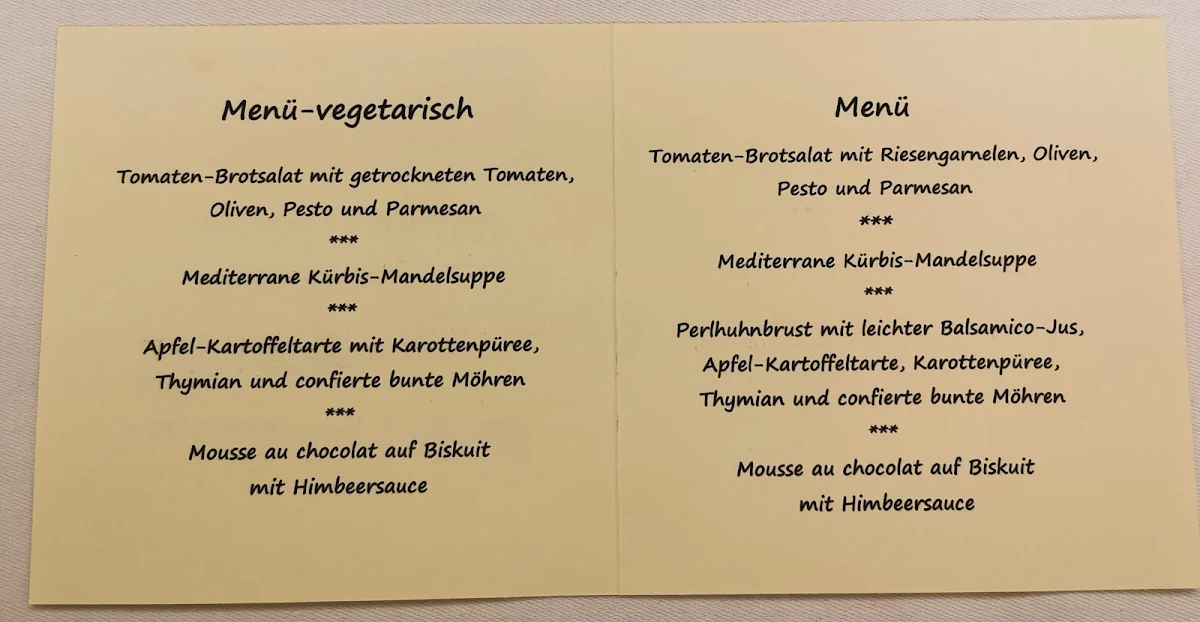 Menü-vegetarisch
Tomaten-Brotsalat mit getrockneten Tomaten,
Oliven, Pesto und Parmesan
***
Mediterrane Kürbis-Mandelsuppe
***
Apfel-Kartoffeltarte mit Karottenpüree,
Thymian und confierte bunte Möhren
***
Mousse au chocolat auf Biskuit
mit Himbeersauce
Menü
Tomaten-Brotsalat mit Riesengarnelen, Oliven,
Pesto und Parmesan
***
Mediterrane Kürbis-Mandelsuppe
***
Perlhuhnbrust mit leichter Balsamico-Jus,
Apfel-Kartoffeltarte, Karottenpüree,
Thymian und confierte bunte Möhren
***
Mousse au chocolat auf Biskuit
mit Himbeersauce